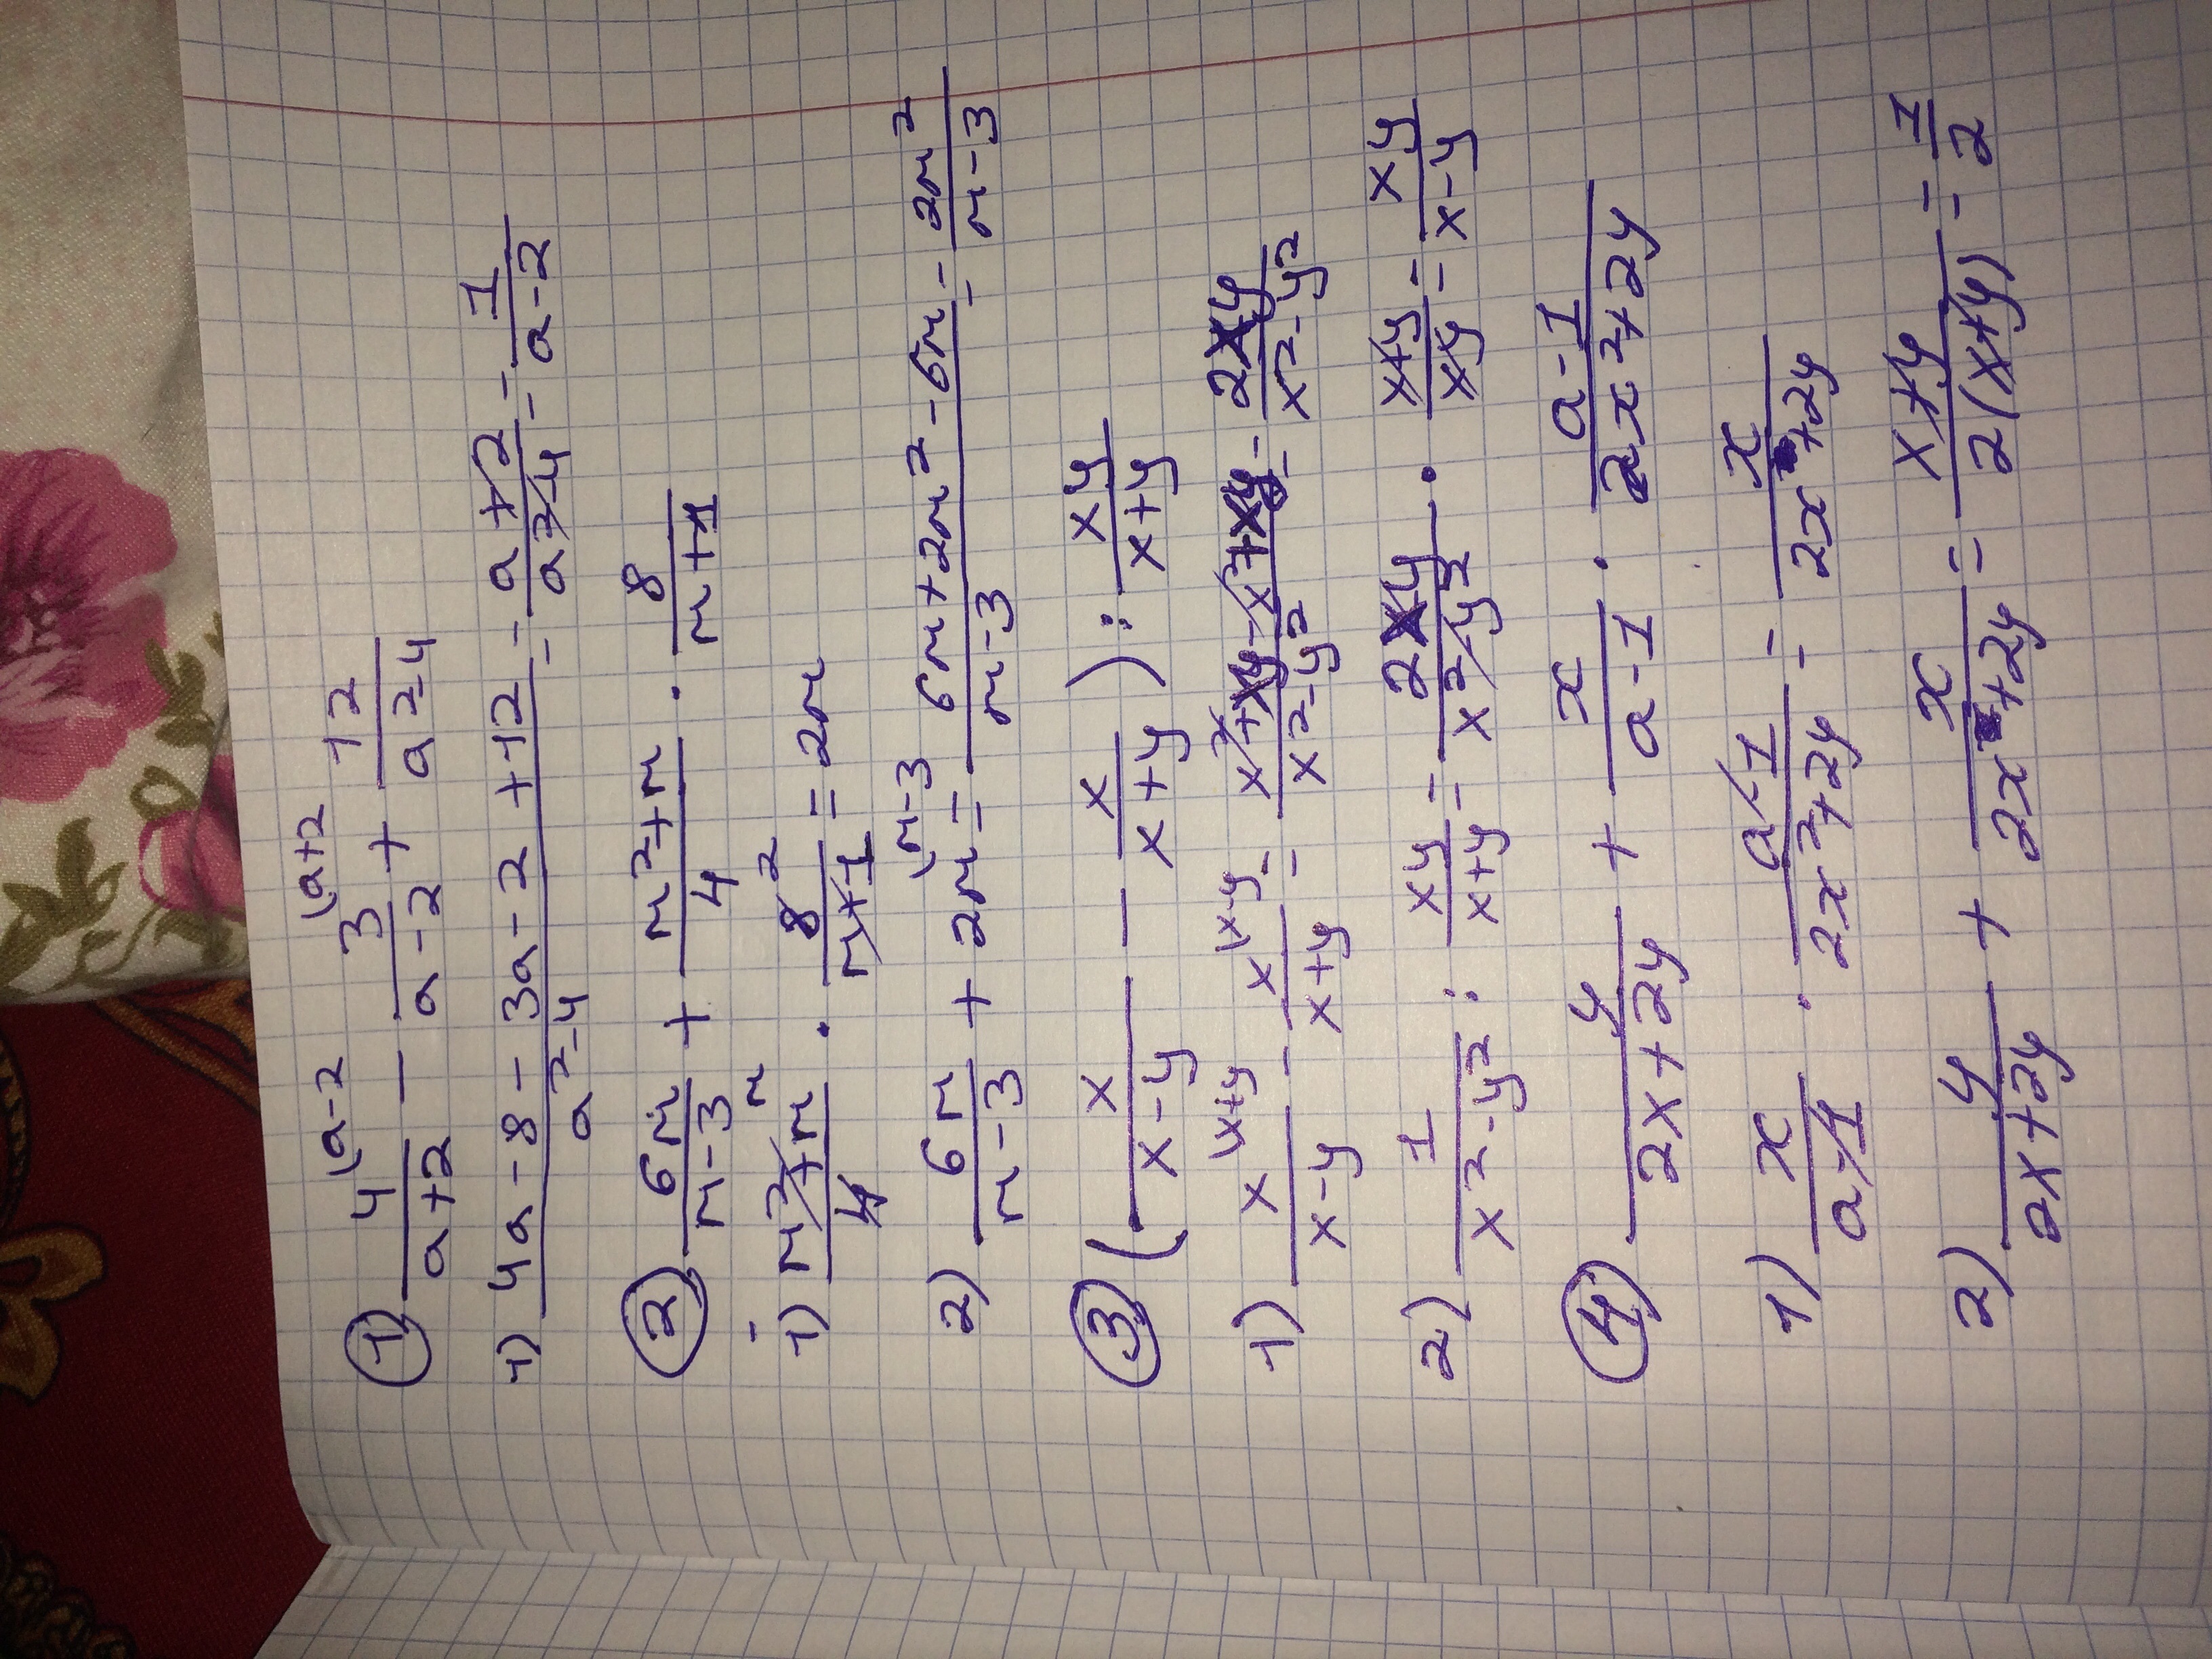 ① 4(a-2/a+2 - 3(a+2/a-2 + 12/a²-4
1) 4a-8-3a-2+12/a²-4 = a+2/a²-4 = 1/a-2
② 6m/m-3 + m²+m/4 · 8/m+1
1) m²+m m/4 · 8 2/m+1 = 2m
2) 6m/m-3 + 2m(m-3 = 6m+2m²-6m/m-3 = 2m²/m-3
③ (x/x-y - x/x+y) : xy/x+y
1) x(x+y/x-y - x(x-y/x+y = x²+xy-x²+xy/x²-y² = 2xy/x²-y²
2) 1/x²-y² : xy/x+y = 2xy/x²-y² · x+y/xy = xy/x-y
④ y/2x+2y + x/a-1 · a-1/2x²+2y
1) x/a-1 · a-1/2x²+2y = x/2x+2y
2) y/2x+2y + x/2x+2y = x+y/2(x+y) = 1/2